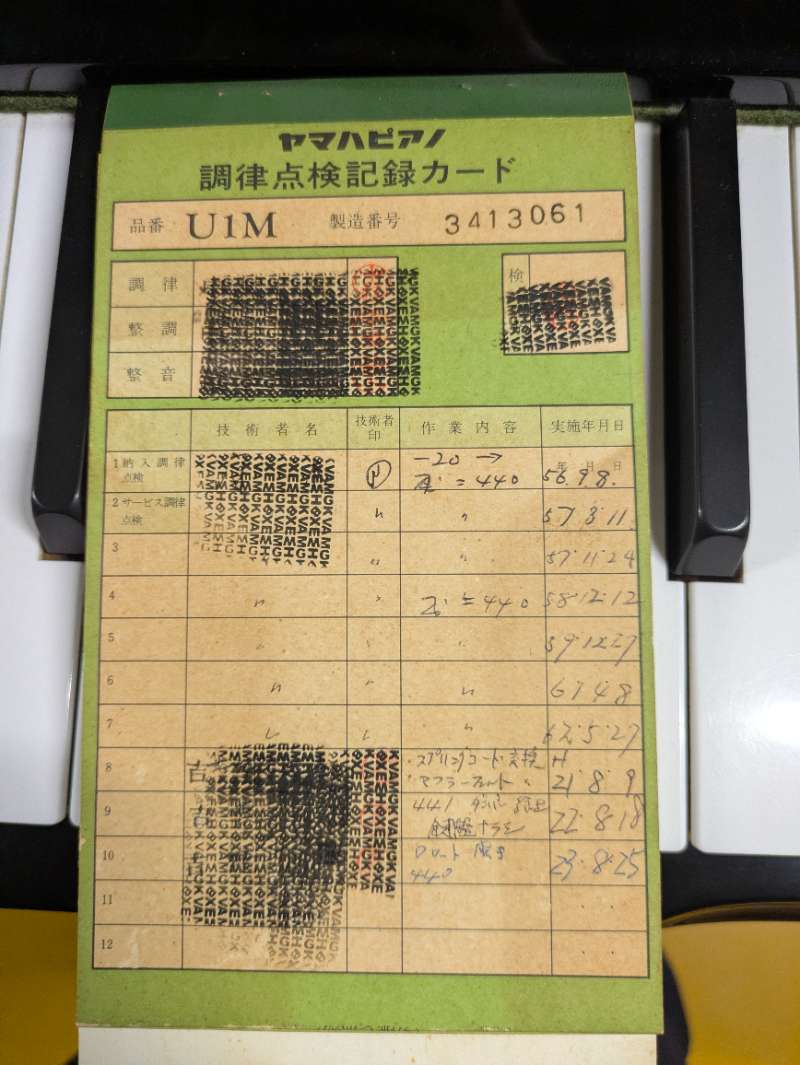 ヤマハピアノ
調律点検記録カード
品番 U1M 製造番号 3413061
調律
整調
整音
検
技術者名 技術者印 作業内容 実施年月日
1 納入調律点検 -20 → = 440 年 月 日 56.9.8.
2 サービス調律点検 〃 〃 57.3.11.
3 〃 〃 57.11.24
4 〃 〃 = 440 58.12.12
5 〃 〃 〃 59.12.27
6 〃 〃 〃 61.4.8
7 〃 〃 〃 62.5.27
8 吉 ・スプリングコード交換 H
・マフラーフェルト 〃 21.8.9
9 吉 441 22.8.18
10 23.8.25
440
11
12